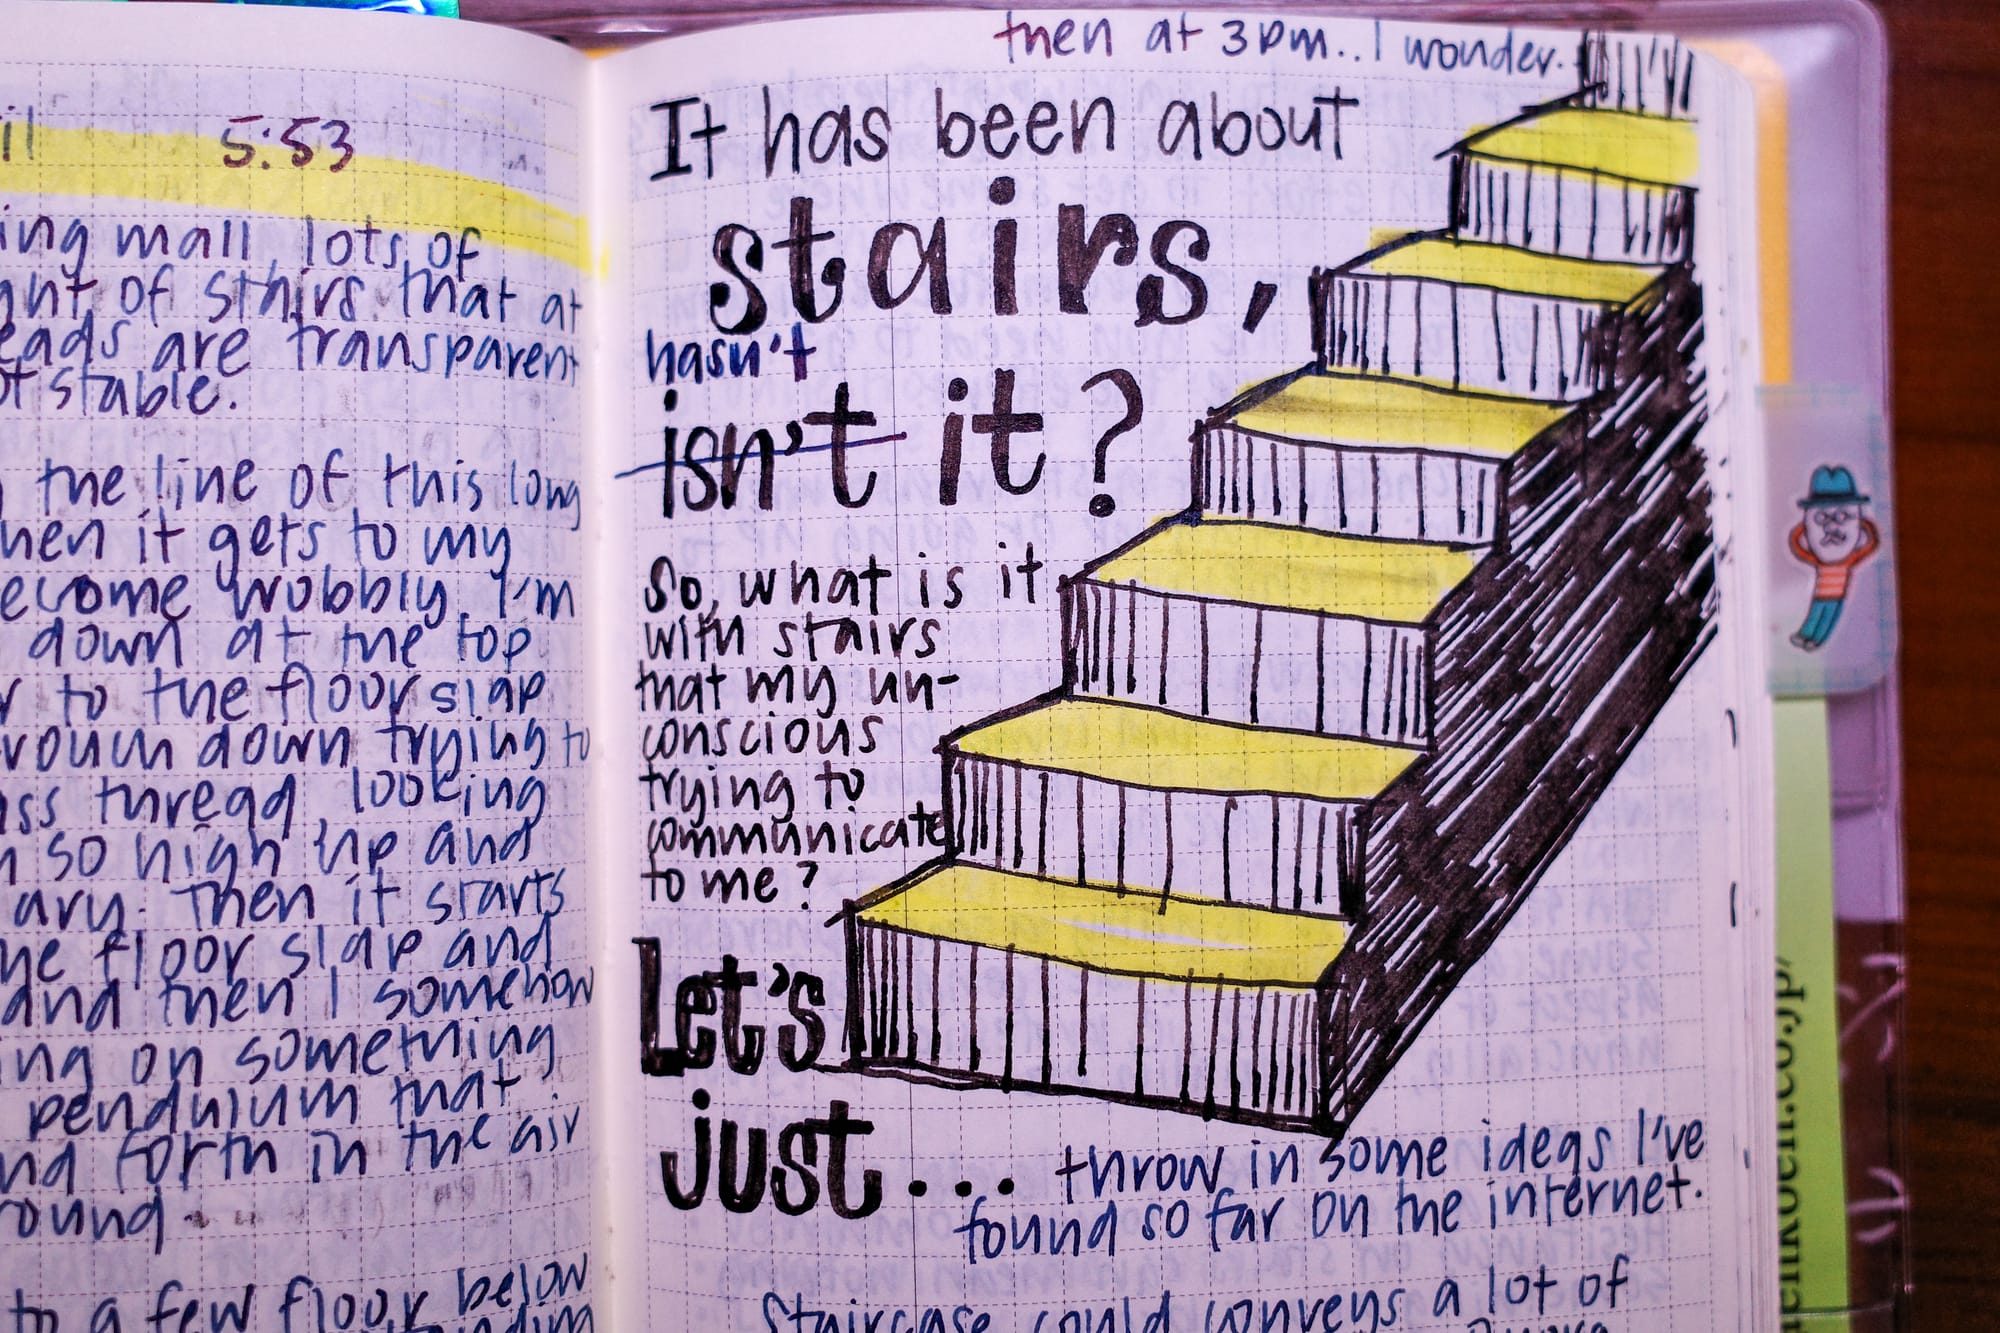 5:53
ing mall, lots of
of stairs that at
eads are transparent
stable.
the line of this long
hen it gets to my
ecome wobbly. I'm
down at the top
to the floor slap
down trying to
thread, looking
so high up and
ary. Then it starts
floor slap and
and then I somehow
ing on something
pendulum that
forth in the air
ound.
to a few floor below
then at 3pm.. I wonder.
It has been about
stairs,
hasn't
isn't it?
So, what is it
with stairs
that my un-
conscious
trying to
communicate
to me?
Let's
just... throw in some ideas I've
found so far on the internet.
Staircase could conveys a lot of